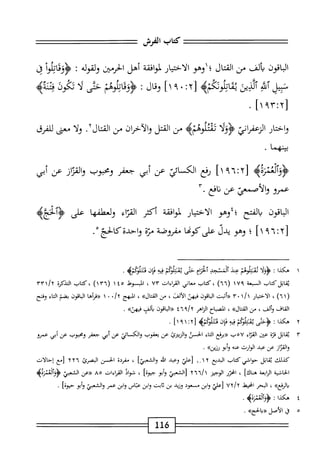 كتاب الفرش
الباقون بألف من القتال ١؛ وهو الاختيار لموافقة أهل الحرمين ولقوله : ﴿وَقَاتِلُوا۟ فِي
سَبِيلِ ٱللَّهِ ٱلَّذِينَ يُقَاتِلُونَكُمْ﴾ [١٩٠:٢] وقال : ﴿وَقَاتِلُوهُمْ حَتَّى لَا تَكُونَ فِتْنَةٌ﴾
[١٩٣:٢] .
واختار الزعفرانيّ ﴿وَلَا تَقْتُلُوهُمْ﴾ من القتل والآخران من القتال ٢. ولا معنى للفرق
بينهما .
﴿وَٱلْعُمْرَةُ﴾ [١٩٦:٢] رفع الكسائيّ عن أبي جعفر ومحبوب والقزّاز عن أبي
عمرو والأصمعيّ عن نافع .٣
الباقون بالفتح ٤؛ وهو الاختيار لموافقة أكثر القرّاء ولعطفها على ﴿ٱلْحَجَّ﴾
[١٩٦:٢] ؛ وهو يدلّ على كونها مفروضة مرّة واحدة كالحجّ ٥.
١ هكذا : ﴿وَلَا تُقَاتِلُوهُمْ عِندَ ٱلْمَسْجِدِ ٱلْحَرَامِ حَتَّى يُقَاتِلُوكُمْ فِيهِ فَإِن قَاتَلُوكُمْ﴾ .
يُقابل كتاب السبعة ١٧٩ (٦٦) ، كتاب معاني القراءات ٧٣ ، المبسوط ١٤٥ (١٣٦) ، كتاب التذكرة ٣٣١/٢
(٦١) ، الاختيار ٣٠١/١ «أثبت الباقون فيهنّ الألف ، من القتال» ، المبهج ١٠٠/٢ «قرأها الباقون بضمّ التاء وفتح
القاف وألف ، من القتال» ، المصباح الزاهر ٤٦٩/٢ «الباقون بألف فيهنّ» .
٢ هكذا : ﴿حَتَّى يُقَاتِلُوكُمْ فِيهِ فَإِن قَاتَلُوكُمْ﴾ [١٩١:٢] .
٣ يُقابل قرّة عين القرّاء ٥٧ب «برفع التاء الحسنُ والزيريّ عن يعقوب والكسائيّ عن أبي جعفر ومحبوب عن أبي عمرو
والقزّاز عن عبد الوارث عنه وأبو رزين» .
كذلك يُقابل حواشي كتاب البديع ١٢ـ [عليّ وعبد الله والشعبيّ] ، مفردة الحسن البصريّ ٢٢٦ [مع إحالات
الحاشية الرابعة هناك] ، المحرّر الوجيز ٢٦٦/١ [الشعبيّ وأبو حيوة] ، شواذّ القراءات ٨٥ «عن الشعبي ﴿وَالْعُمْرَةُ﴾
بالرفع» ، البحر المحيط ٧٢/٢ [عليّ وابن مسعود وزيد بن ثابت وابن عبّاس وابن عمر والشعبيّ وأبو حيوة] .
٤ هكذا : ﴿وَٱلْعُمْرَةَ﴾ .
٥ في الأصل «بالحج» .
116